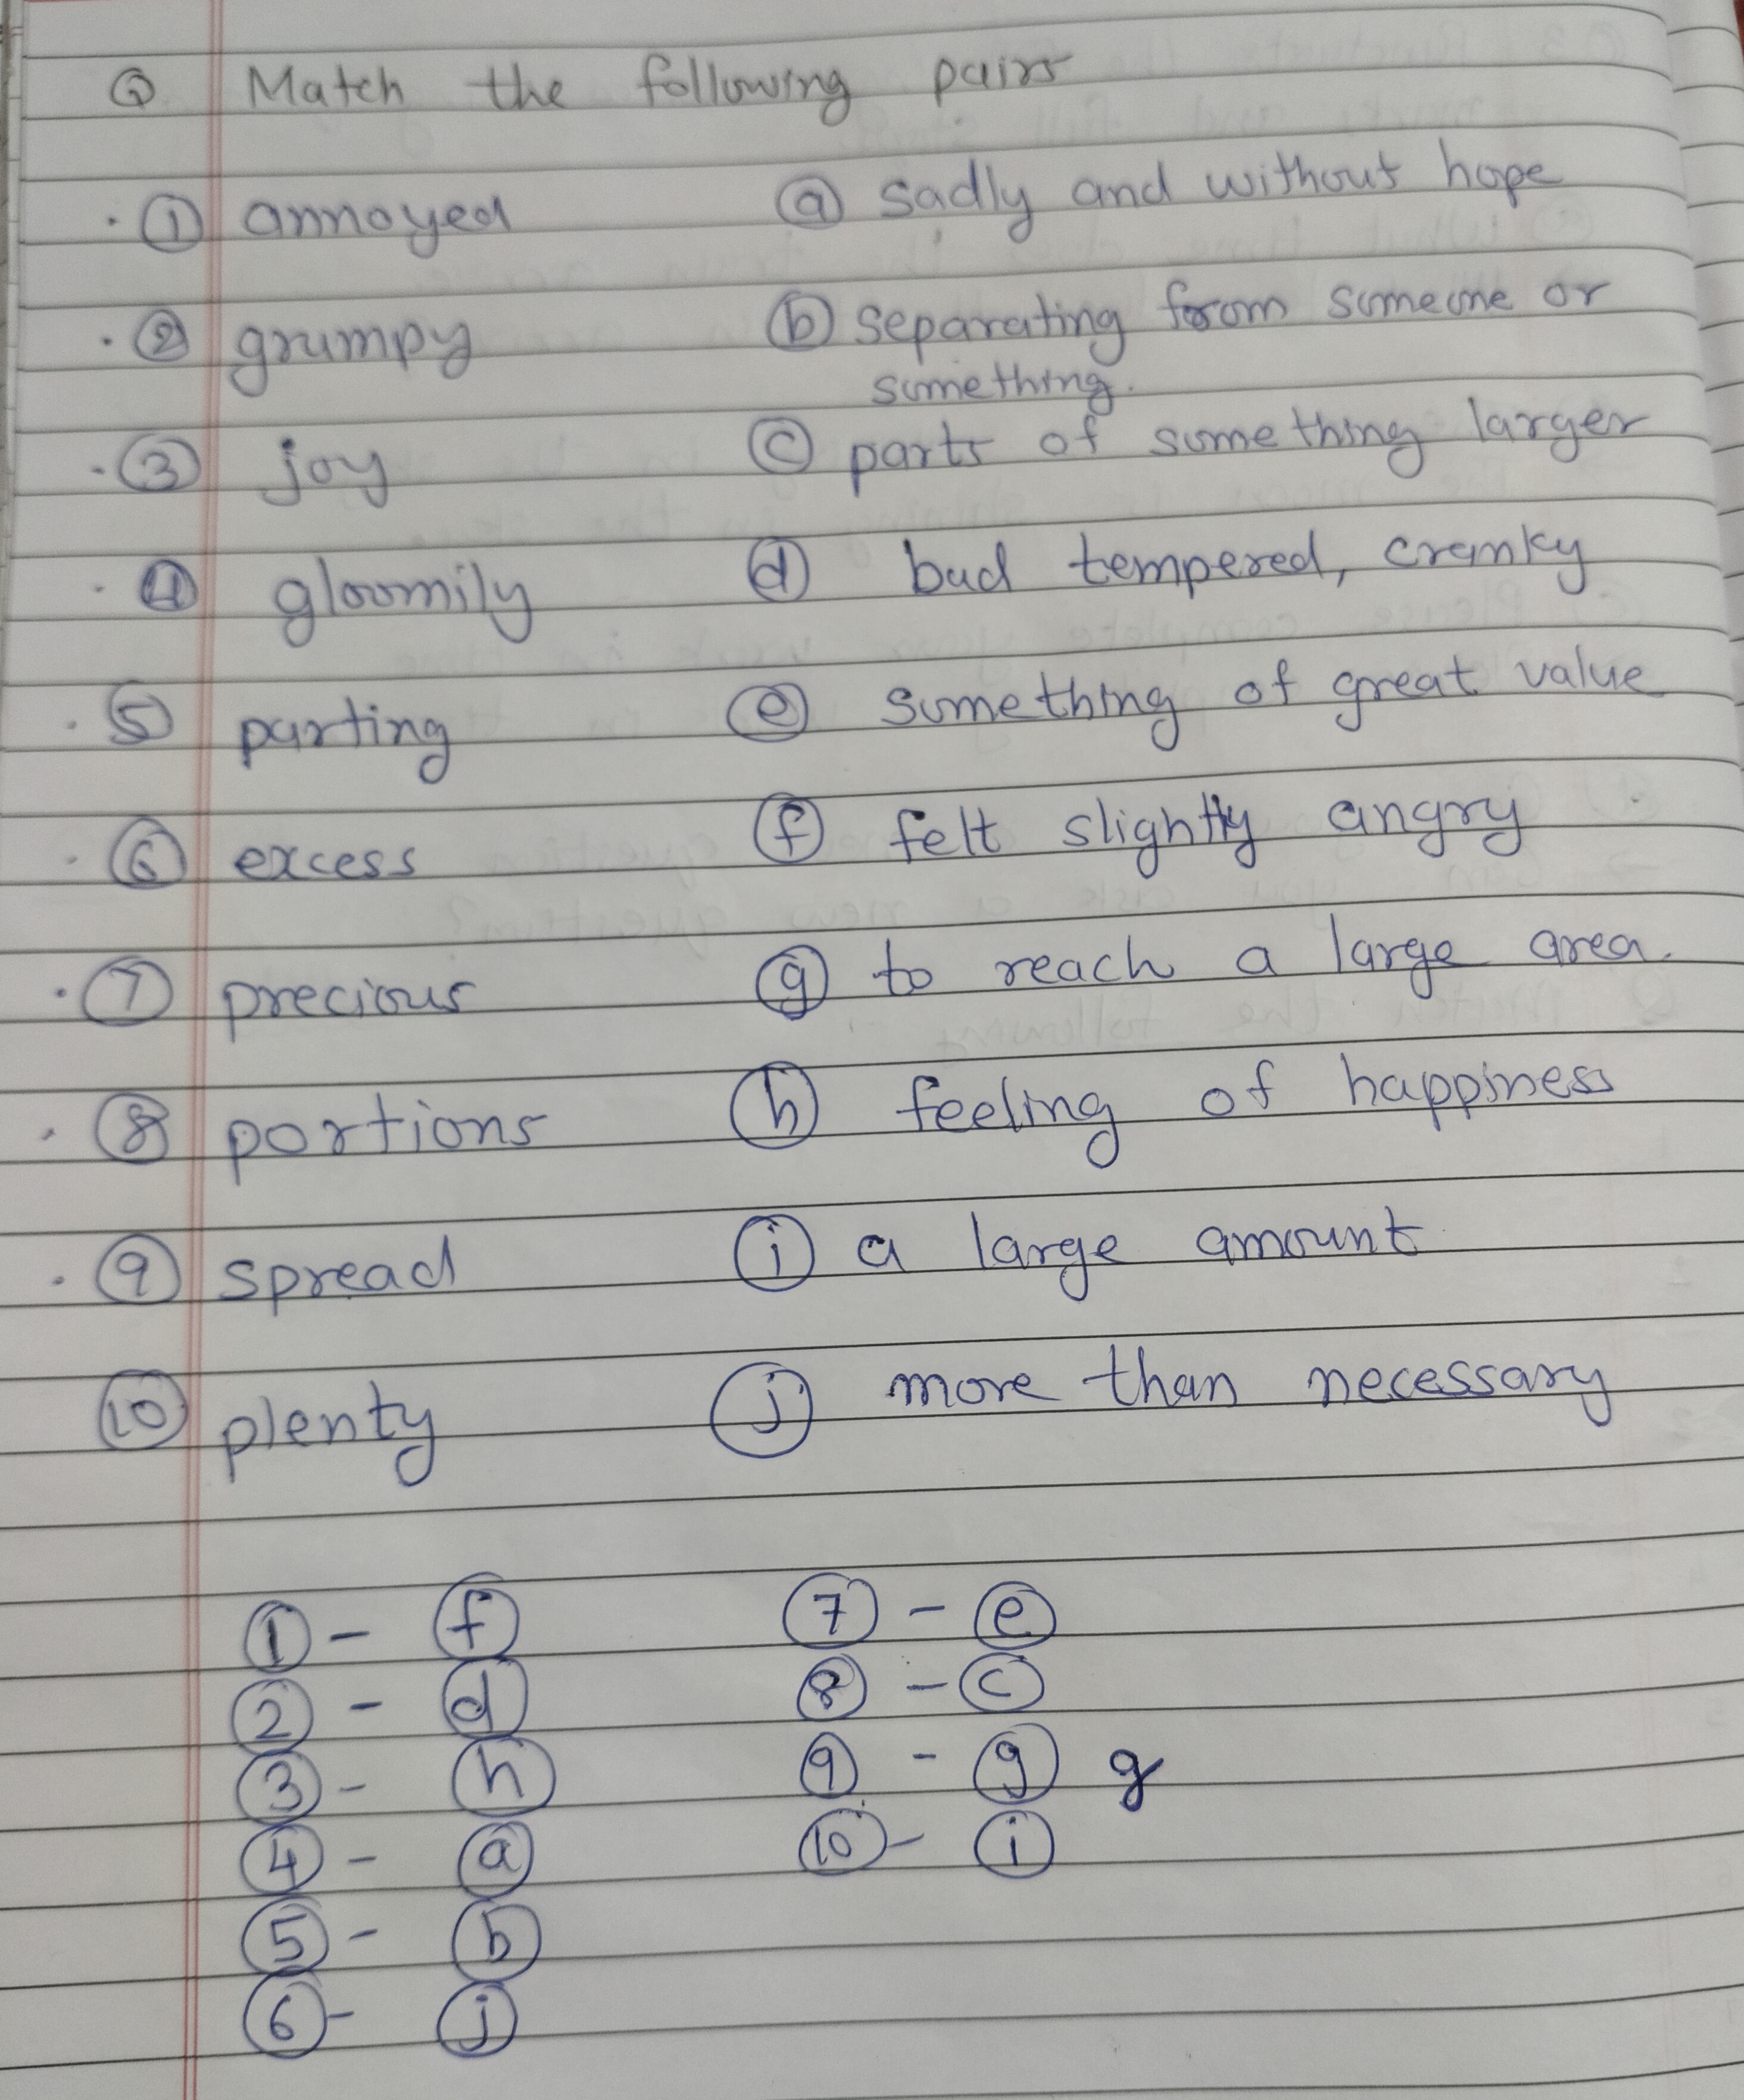 Q Match the following pairs
① annoyed ⓐ sadly and without hope
② grumpy ⓑ separating from someone or
something.
③ joy ⓒ parts of something larger
④ gloomily ⓓ bad tempered, cranky
⑤ parting ⓔ something of great value
⑥ excess ⓕ felt slightly angry
⑦ precious ⓖ to reach a large area.
⑧ portions ⓗ feeling of happiness
⑨ spread ⓘ a large amount
⑩ plenty ⓙ more than necessary
① - ⓕ ⑦ - ⓔ
② - ⓓ ⑧ - ⓒ
③ - ⓗ ⑨ - ⓖ g
④ - ⓐ ⑩ - ⓘ
⑤ - ⓑ
⑥ - ⓙ